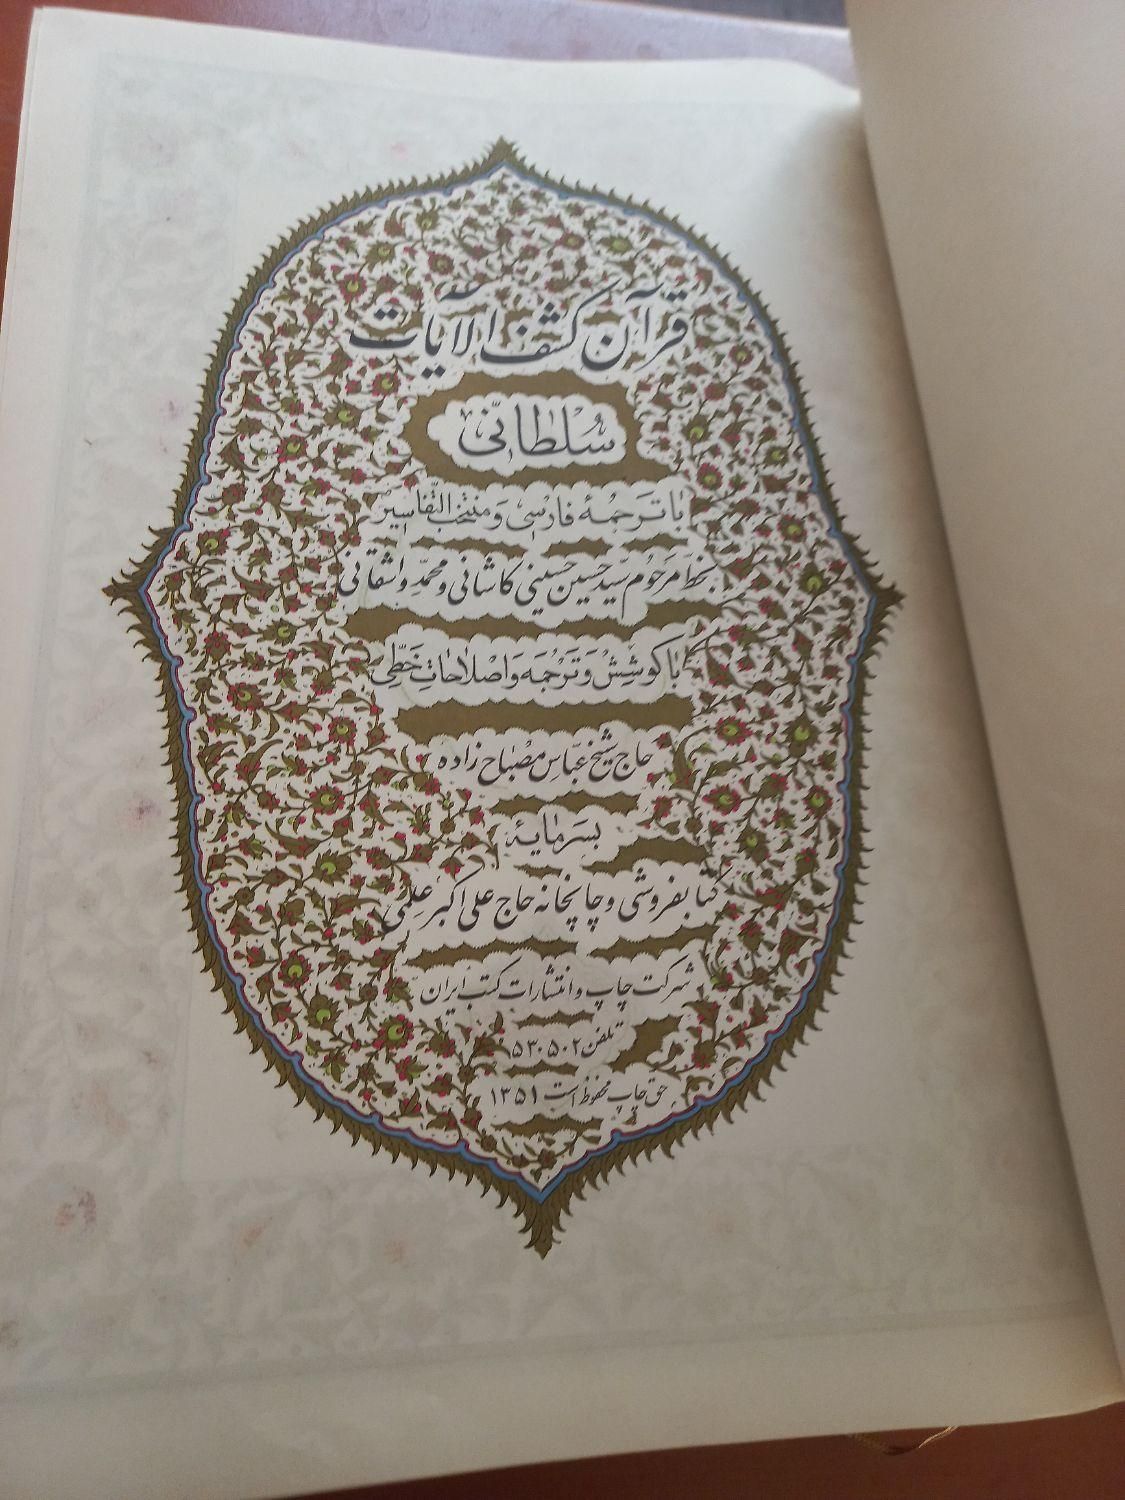 قرآن کشف الآیات
سُلطانی
با ترجمهٔ فارسی و منتخب التّفاسیر
بخط مرحوم سیّد حسین حسینی کاشانی و محمّد واشقانی
با کوشِش و تَرجمَه و اصْلاحاتِ خَطّی
حاج شیخ عبّاس مصباح زاده
بسَرمایهٔ
کتابفروشی و چاپخانه حاج علی اکبر علمی
شرکت چاپ و انتشارات کتب ایران
تلفن ۵۳۰۵۰۲
حق چاپ محفوظ است ۱۳۵۱